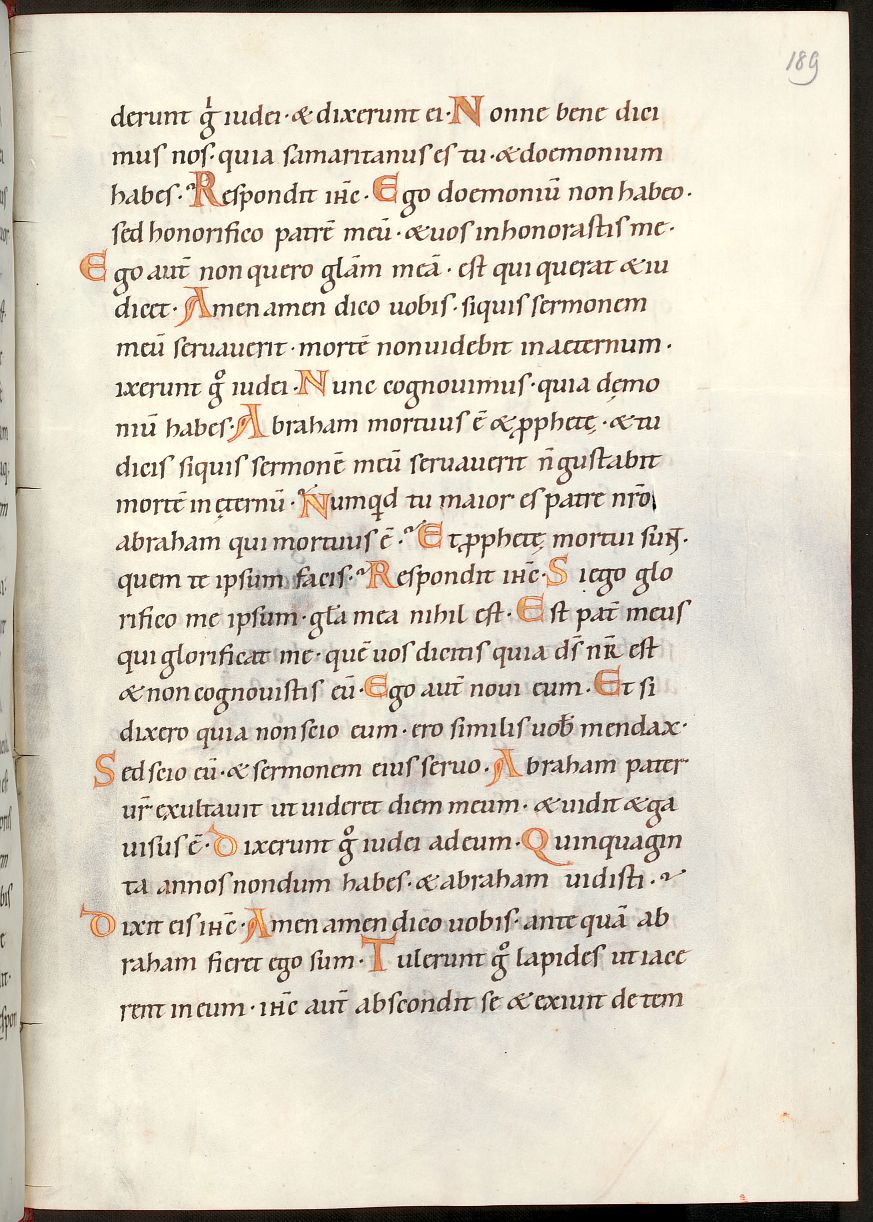 189
derunt g̊ iudei · & dixerunt ei · Nonne bene dici
mus nos · quia samaritanus es tu · & doemonium
habes · Respondit ihc̄ · Ego doemoniū non habeo ·
sed honorifico patrē meū · & uos inhonorastis me ·
Ego aut̄ non quero glām meā · est qui querat & iu
dicet · Amen amen dico uobis · siquis sermonem
meū seruauerit · mortē non uidebit in aeternum ·
ixerunt g̊ iudei · Nunc cognovimus · quia dęmo
niū habes · Abraham mortuus ē & ꝓphetę · & tu
dicis siquis sermonē meū seruauerit n̄ gustabit
mortē in ęternū · Numqd tu maior es patre nr̄o
abraham qui mortuus ē · Et ꝓphetę mortui sunt ·
quem te ipsum facis · Respondit ihc̄ · Si ego glo
rifico me ipsum · gla mea nihil est · Est pat̄ meus
qui glorificat me · quē uos dicitis quia ds̄ nr̄ est
& non cognouistis eū · Ego aut̄ noui eum · Et si
dixero quia non scio eum · ero similis uob mendax ·
Sed scio eū · & sermonem eius seruo · Abraham pater
ur̄ exultauit ut uideret diem meum · & uidit & ga
uisus ē · Dixerunt g̊ iudei ad eum · Quinquagin
ta annos nondum habes · & abraham uidisti ·
Dixit eis ihc̄ · Amen amen dico uobis · ante quā ab
raham fieret ego sum · Tulerunt g̊ lapides ut iace
rent in eum · ihc̄ aut̄ abscondit se & exiuit de tem